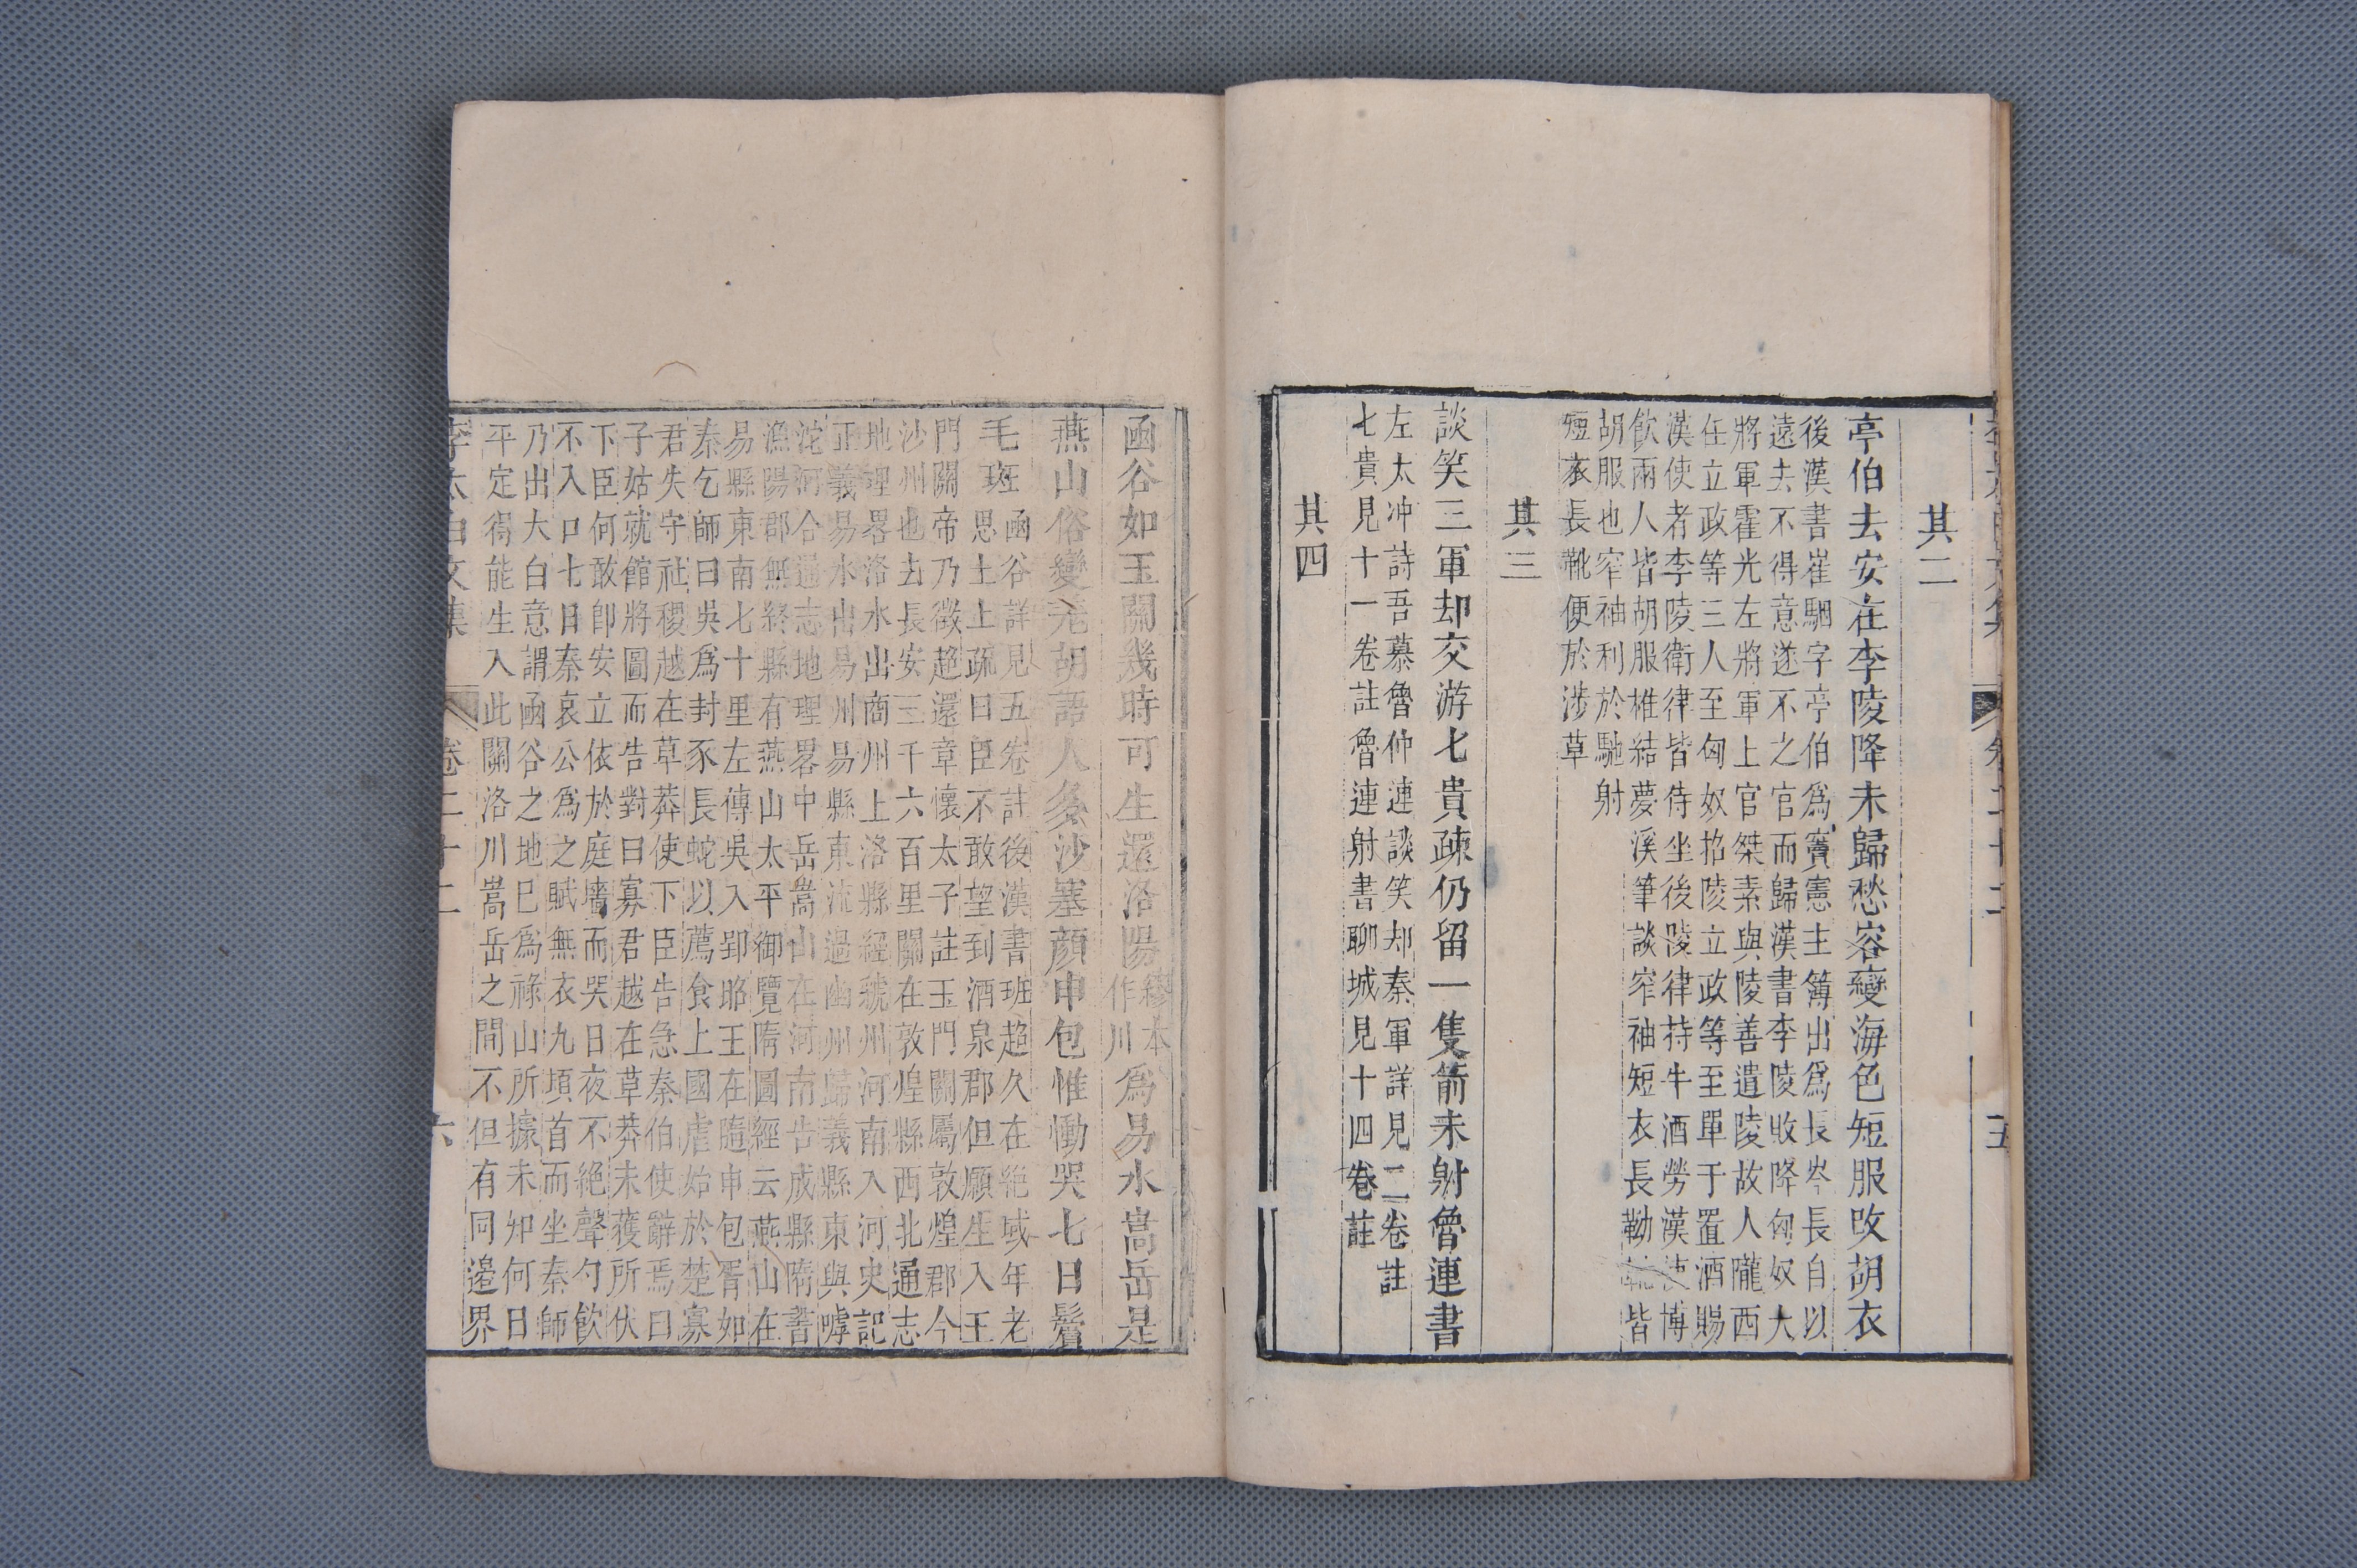 其二
亭伯去安在李陵降未歸愁容變海色短服改胡衣
後漢書崔駰字亭伯爲竇憲主簿出爲長岑長自以
遠去不得意遂不之官而歸漢書李陵敗降匈奴大
將軍霍光左將軍上官桀素與陵善遣陵故人隴西
任立政等三人至匈奴招陵立政等至單于置酒賜
漢使者李陵衛律皆侍坐後陵律持牛酒勞漢使博
飲兩人皆胡服椎結夢溪筆談窄袖短衣長勒靴皆
胡服也窄袖利於馳射
短衣長靴便於涉草
其三
談笑三軍却交游七貴疎仍留一隻箭未射魯連書
左太冲詩吾慕魯仲連談笑却秦軍詳見二卷註
七貴見十一卷註魯連射書聊城見十四卷註
其四
五
函谷如玉關幾時可生還洛陽繆本作川爲易水嵩岳是
燕山俗變羌胡語人多沙塞顏申包惟慟哭七日鬢
毛斑 函谷詳見五卷註後漢書班超久在絕域年老
思土上疏曰臣不敢望到酒泉郡但願生入玉
門關帝乃徵超還章懷太子註玉門關屬敦煌郡今
沙州也去長安三千六百里關在敦煌縣西北通志
地理畧洛水出商州上洛縣經虢州河南入河史記
正義易水出易州易縣東流過幽州歸義縣東與嘑
沱河合通志地理畧中岳嵩山在河南告成縣隋書
漁陽郡無終縣有燕山太平御覽隋圖經云燕山在
易縣東南七十里左傳吳入郢昭王在隨申包胥如
秦乞師曰吳爲封豕長蛇以薦食上國虐始於楚寡
君失守社稷越在草莽使下臣告急秦伯使辭焉曰
子姑就館將圖而告對曰寡君越在草莽未獲所伏
下臣何敢卽安立依於庭墻而哭日夜不絕聲勺飲
不入口七日秦哀公爲之賦無衣九頓首而坐秦師
乃出太白意謂函谷之地巳爲祿山所據未知何日
平定得能生入此關洛川嵩岳之間不但有同邉界
李太白文集 卷二十二 六